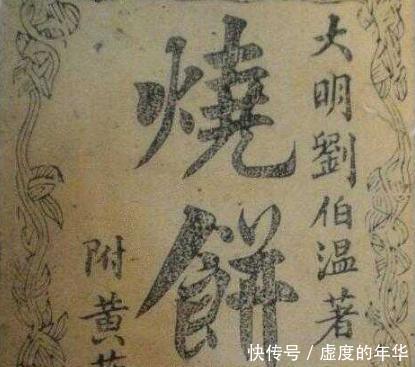 大明劉伯温著
燒餅
附黄
快传号 / 虚度的年华